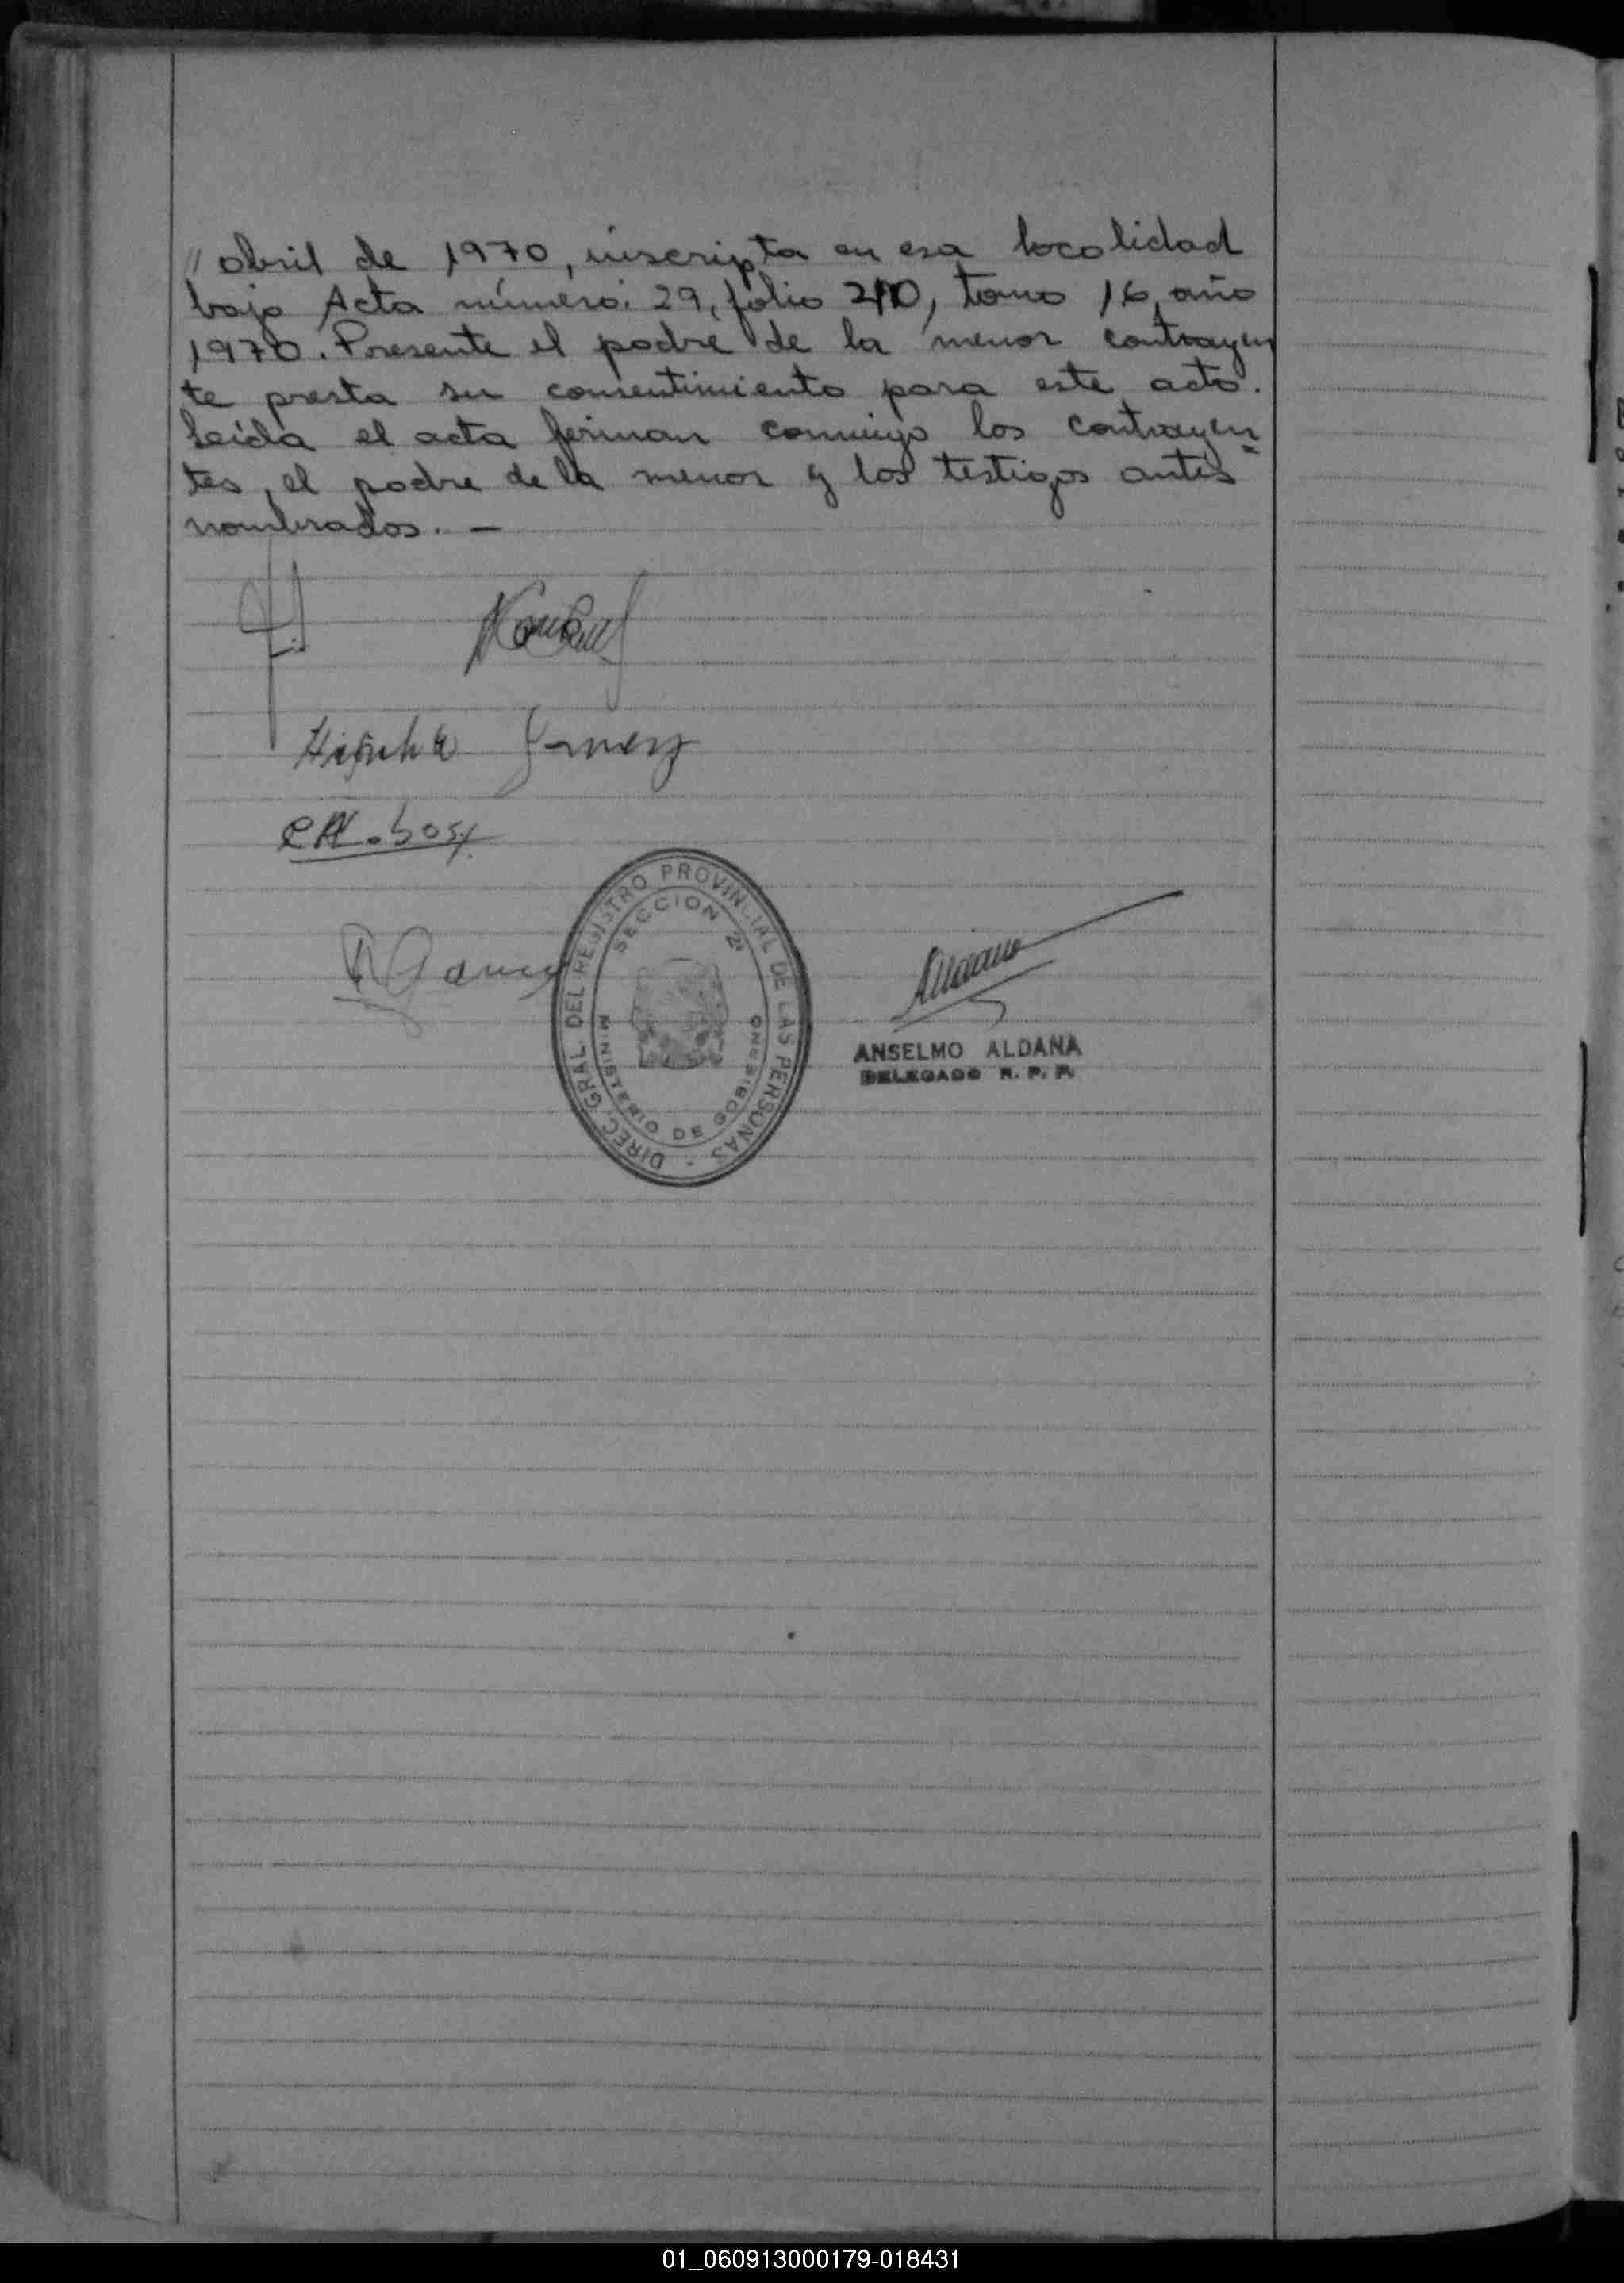 // abril de 1970, inscripta en esa localidad
bajo Acta número: 29, folio 210, tomo 16, año
1970. Presente el padre de la menor contrayen
te presta su consentimiento para este acto.
Leída el acta firman conmigo los contrayen
tes, el padre de la menor y los testigos antes
nombrados. —
DIREC. GRAL. DEL REGISTRO PROVINCIAL DE LAS PERSONAS -
SECCION 2ª
MINISTERIO DE GOBIERNO
Aldana
ANSELMO ALDANA
DELEGADO R. P. P.
01_060913000179-018431